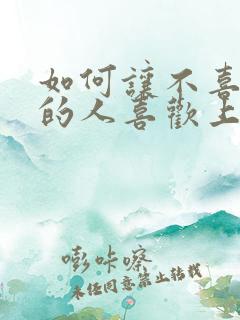 如何讓不喜
的人喜歡上
嘭咔嚓
未经同意禁止转载